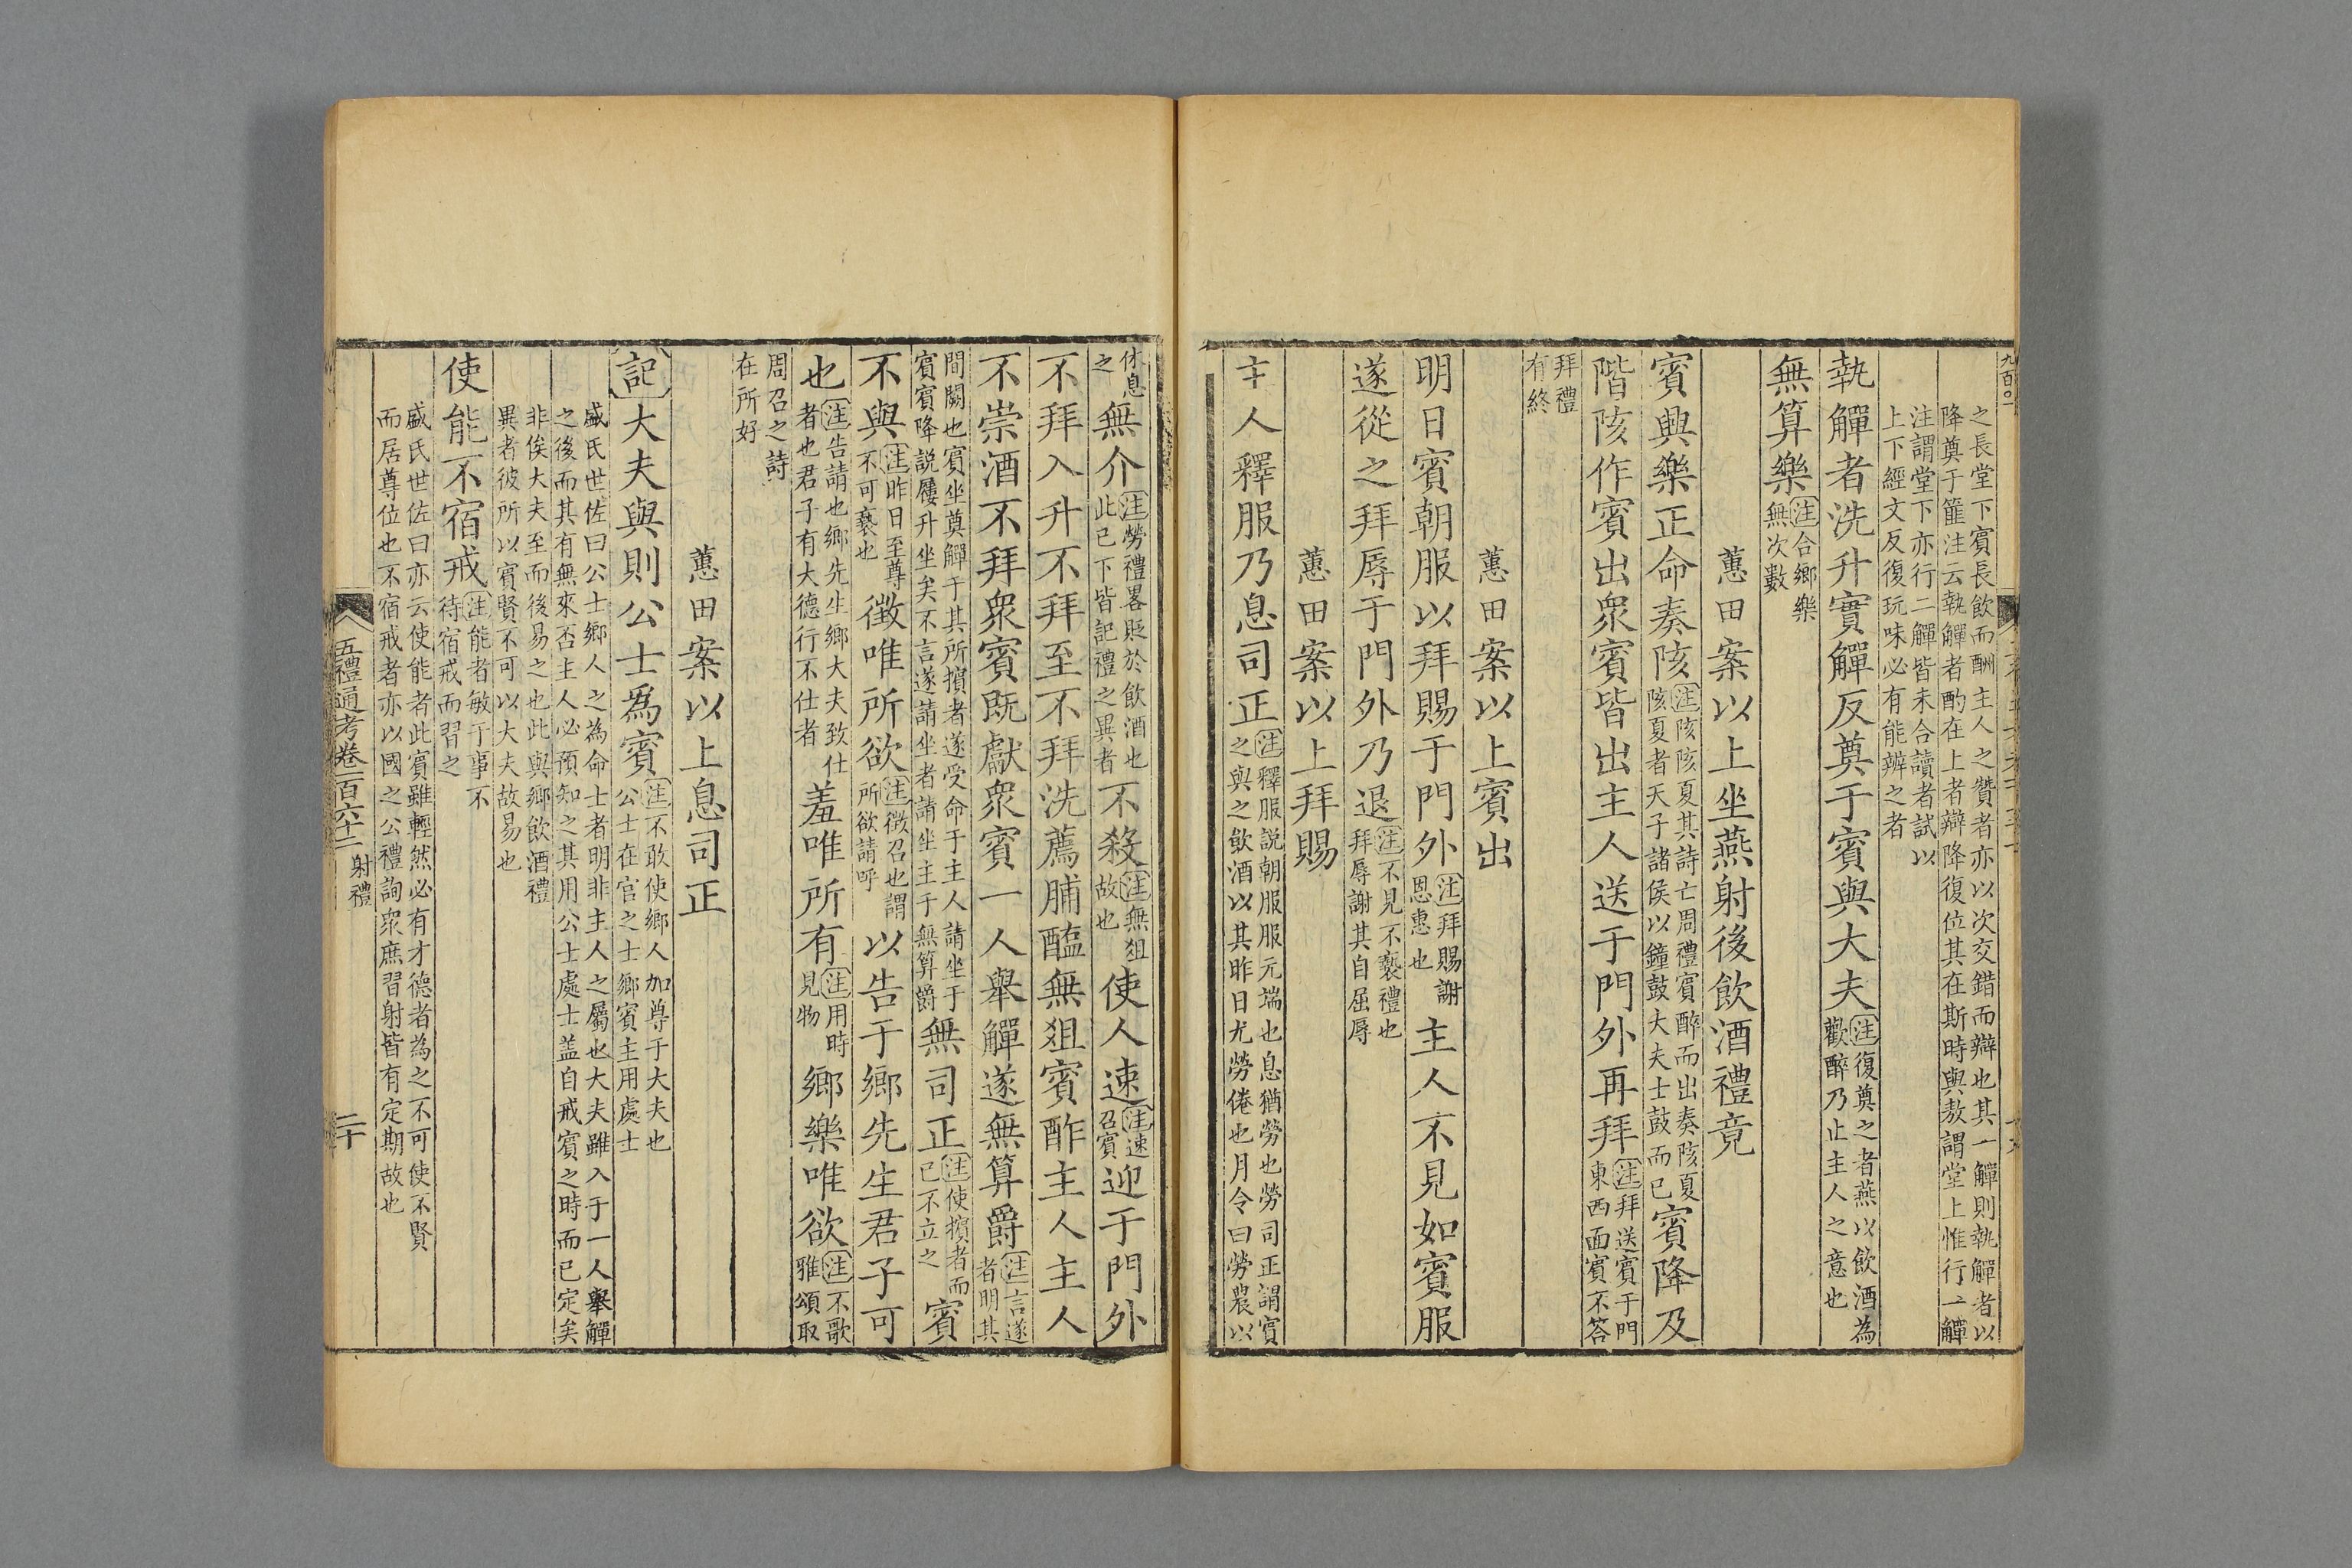 九百〇一
之長堂下賓長飲而酬主人之贊者亦以次交錯而辯也其一觶則執觶者以
降奠于篚注云執觶者酌在上者辯降復位其在斯時與敖謂堂上惟行一觶
注謂堂下亦行二觶皆未合讀者試以
上下經文反復玩味必有能辨之者
執觶者洗升實觶反奠于賓與大夫注復奠之者燕以飲酒為
歡醉乃止主人之意也
無算樂注合鄉樂
無次數
蕙田案以上坐燕射後飲酒禮竟
賓興樂正命奏陔注陔陔夏其詩亡周禮賓醉而出奏陔夏
陔夏者天子諸侯以鐘鼓大夫士鼓而已賓降及
階陔作賓出眾賓皆出主人送于門外再拜注拜送賓于門
東西面賓不答
拜禮
有終
蕙田案以上賓出
明日賓朝服以拜賜于門外注拜賜謝
恩惠也主人不見如賓服
遂從之拜辱于門外乃退注不見不褻禮也
拜辱謝其自屈辱
蕙田案以上拜賜
主人釋服乃息司正注釋服說朝服服元端也息猶勞也勞司正謂賓
之與之飲酒以其昨日尤勞倦也月令曰勞農以
休息
之無介注勞禮畧貶於飲酒也
此已下皆記禮之異者不殺注無俎
故也使人速注速
召賓迎于門外
不拜入升不拜至不拜洗薦脯醢無俎賓酢主人主人
不崇酒不拜眾賓既獻眾賓一人舉觶遂無算爵注言遂
者明其
間闕也賓坐奠觶于其所擯者遂受命于主人請坐于
賓賓降說屨升坐矣不言遂請坐者請坐主于無算爵無司正注使擯者而
已不立之賓
不與注昨日至尊
不可褻也徵唯所欲注徵召也謂
所欲請呼以告于鄉先生君子可
也注告請也鄉先生鄉大夫致仕
者也君子有大德行不仕者羞唯所有注用時
見物鄉樂唯欲注不歌
雅頌取
周召之詩
在所好
蕙田案以上息司正
記大夫與則公士為賓注不敢使鄉人加尊于大夫也
公士在官之士鄉賓主用處士
盛氏世佐曰公士鄉人之為命士者明非主人之屬也大夫雖入于一人舉觶
之後而其有無來否主人必預知之其用公士處士蓋自戒賓之時而已定矣
非俟大夫至而後易之也此與鄉飲酒禮
異者彼所以賓賢不可以大夫故易也
使能不宿戒注能者敏于事不
待宿戒而習之
盛氏世佐曰亦云使能者此賓雖輕然必有才德者為之不可使不賢
而居尊位也不宿戒者亦以國之公禮詢眾庶習射皆有定期故也
五禮通考卷一百六十二 射禮 二十